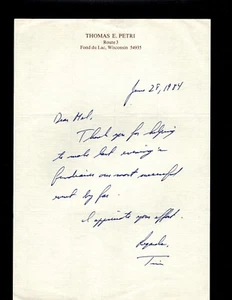 THOMAS E. PETRI
Route 3
Fond du Lac, Wisconsin 54935
June 28, 1984
Dear Mel,
Thank you for helping
to make last evening's
fundraiser our most successful
event by far.
I appreciate your effort.
Regards,
Tim